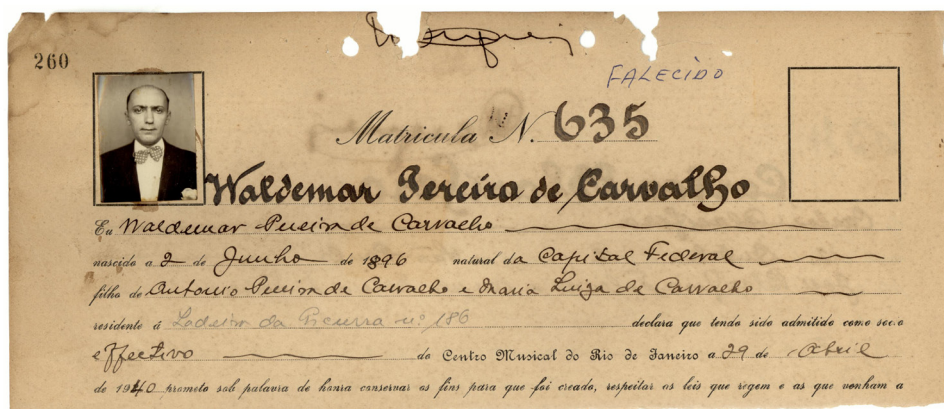 260
FALECIDO
Matricula N. 635
Waldemar Pereira de Carvalho
Eu Waldemar Pereira de Carvalho
nascido a 2 de Junho de 1896 natural da Capital Federal
filho de Antonio Pereira de Carvalho e Maria Luiza de Carvalho
residente á Ladeira da nº 186 declara que tendo sido admitido como socio
effectivo do Centro Musical do Rio de Janeiro a 29 de Abril
de 1940 prometo sob palavra de honra conservar os fins para que foi creado, respeitar as leis que regem e as que venham a